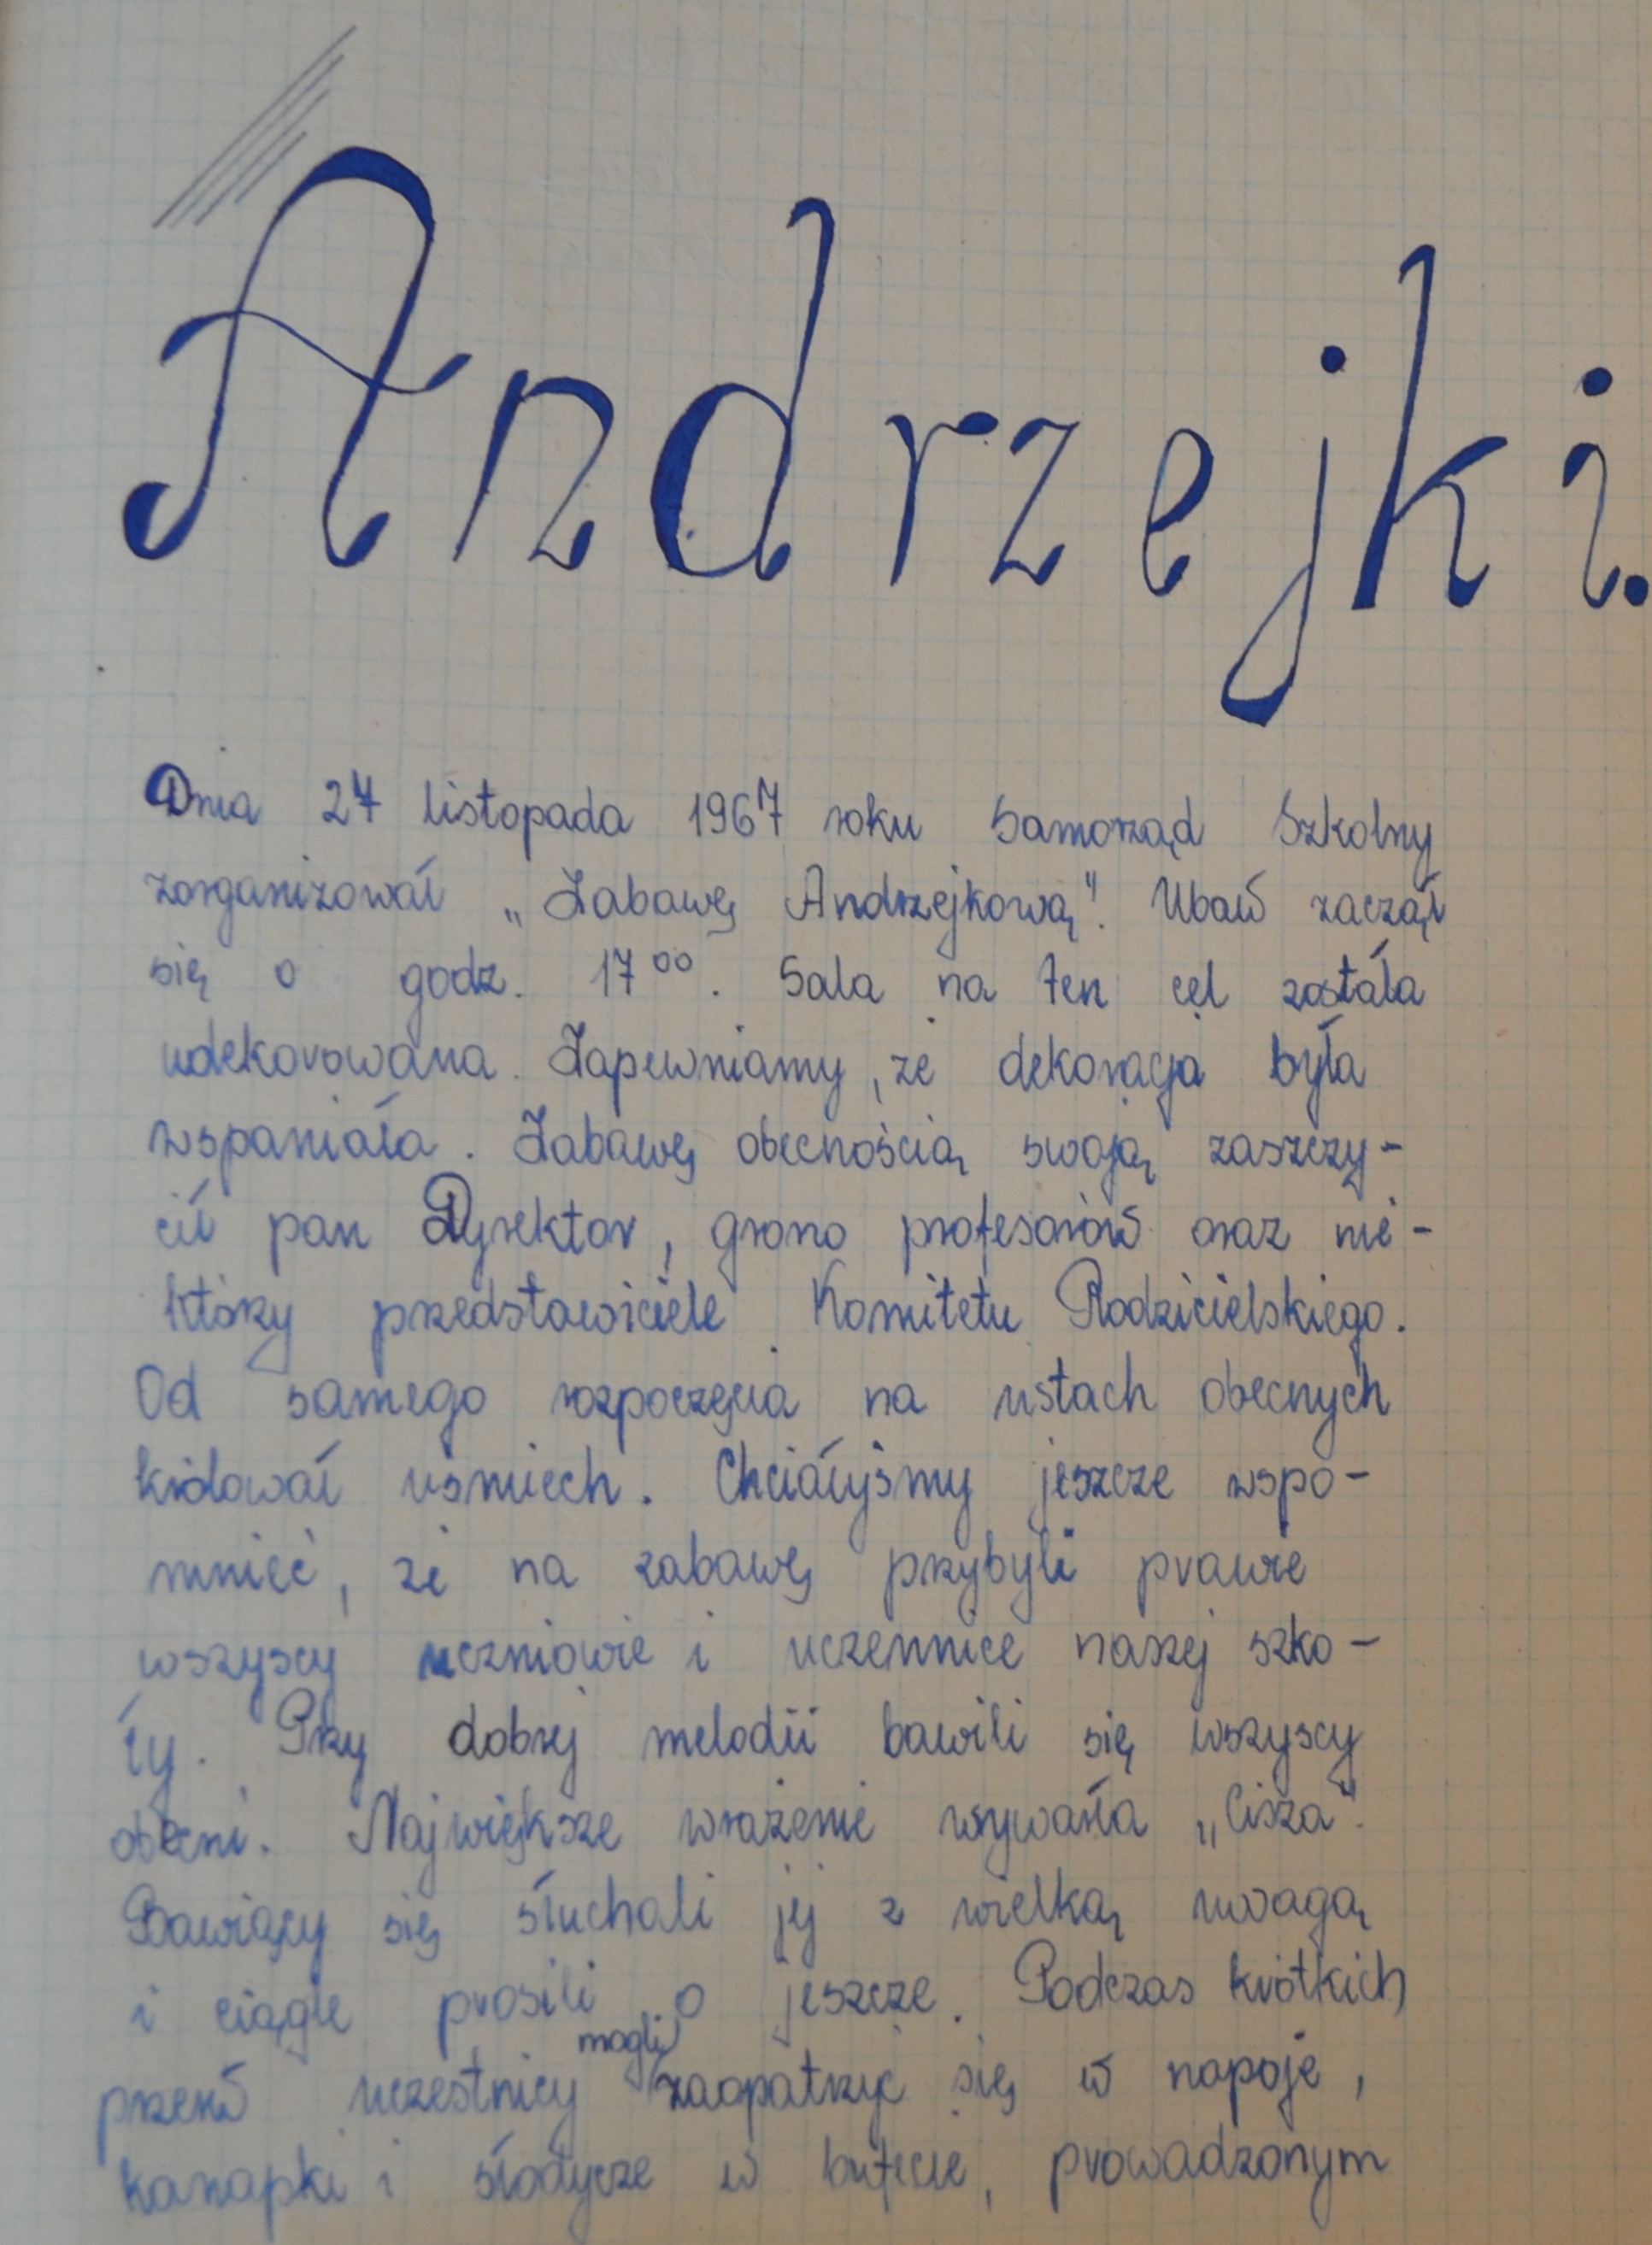 Andrzejki.
Dnia 24 listopada 1967 roku Samorząd Szkolny
zorganizował „Zabawę Andrzejkową". Ubaw zaczął
się o godz. 17⁰⁰. Sala na ten cel została
udekorowana. Zapewniamy, że dekoracja była
wspaniała. Zabawę obecnością swoją zaszczy-
cił pan Dyrektor, grono profesorów oraz nie-
którzy przedstawiciele Komitetu Rodzicielskiego.
Od samego rozpoczęcia na ustach obecnych
królował uśmiech. Chciałyśmy jeszcze wspo-
mnieć, że na zabawę przybyli prawie
wszyscy uczniowie i uczennice naszej szko-
ły. Przy dobrej melodii bawili się wszyscy
obecni. Największe wrażenie wrywała „Cisza".
Bawiący się słuchali jej z wielką uwagą
i ciągle prosili o jeszcze. Podczas krótkich
przerw uczestnicy mogli zaopatrzyć się w napoje,
kanapki i słodycze w bufecie, prowadzonym